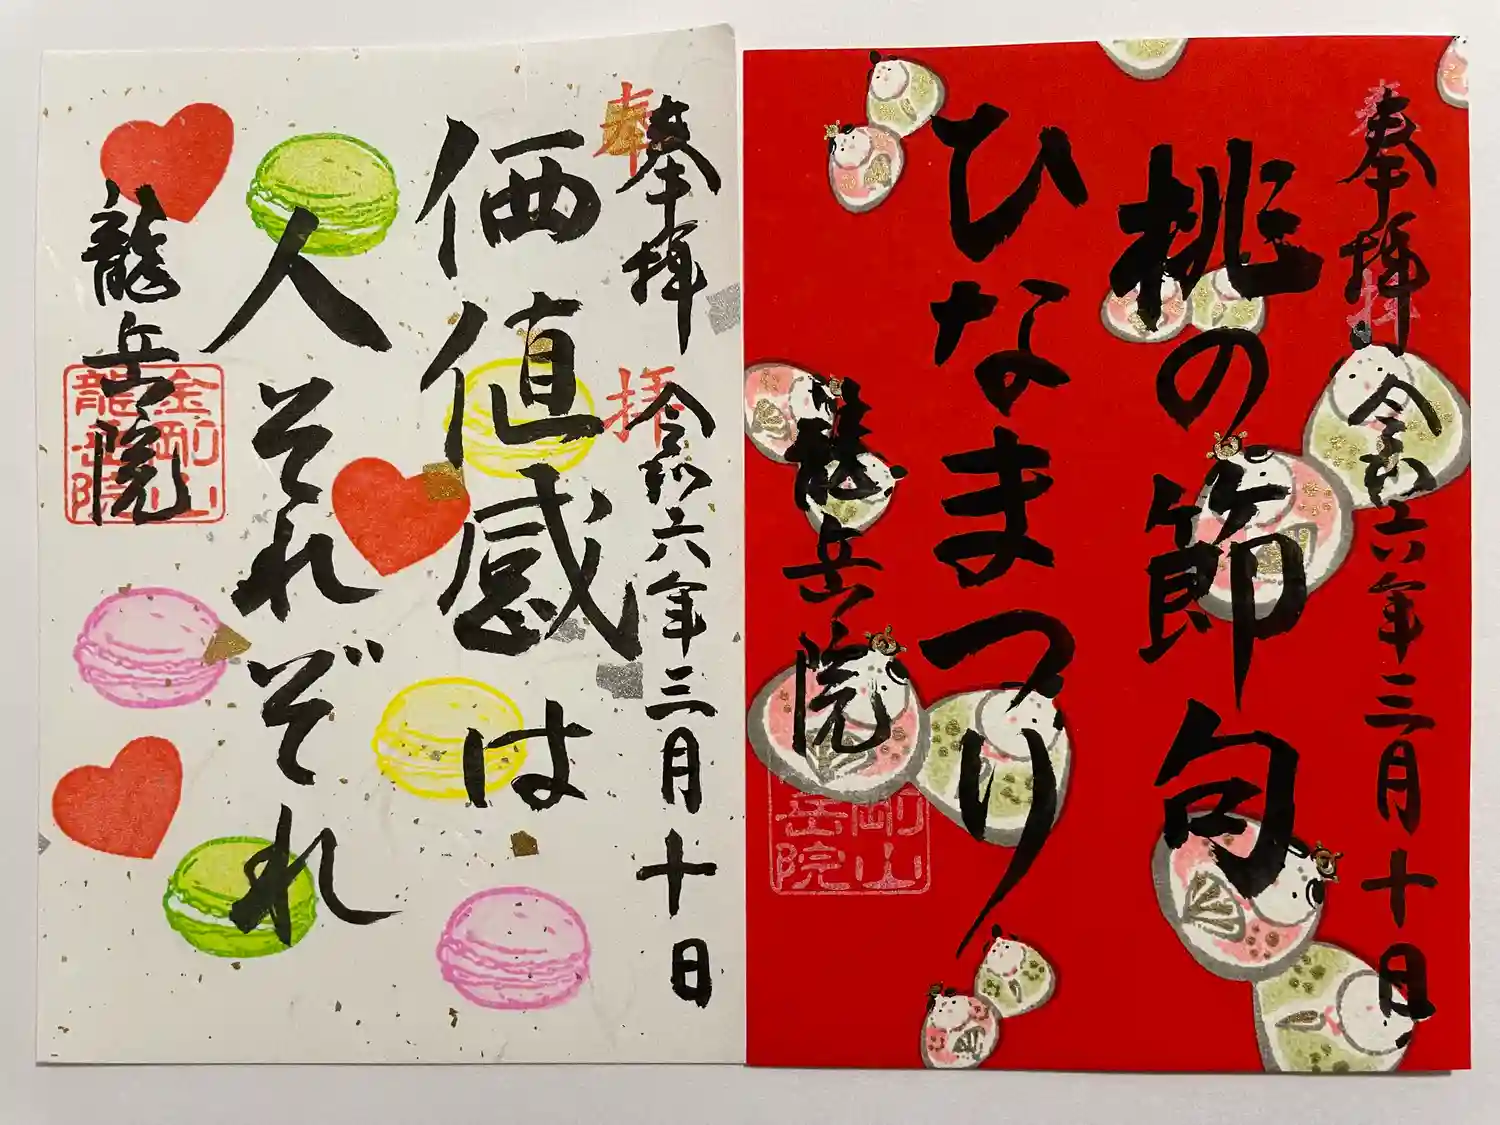 奉拝
奉拝 令和六年三月十日
桃の節句
ひなまつり
龍岳院
剛山
岳院
奉拝
奉拝 令和六年三月十日
価値感は
人それぞれ
龍岳院
金剛山
龍岳院